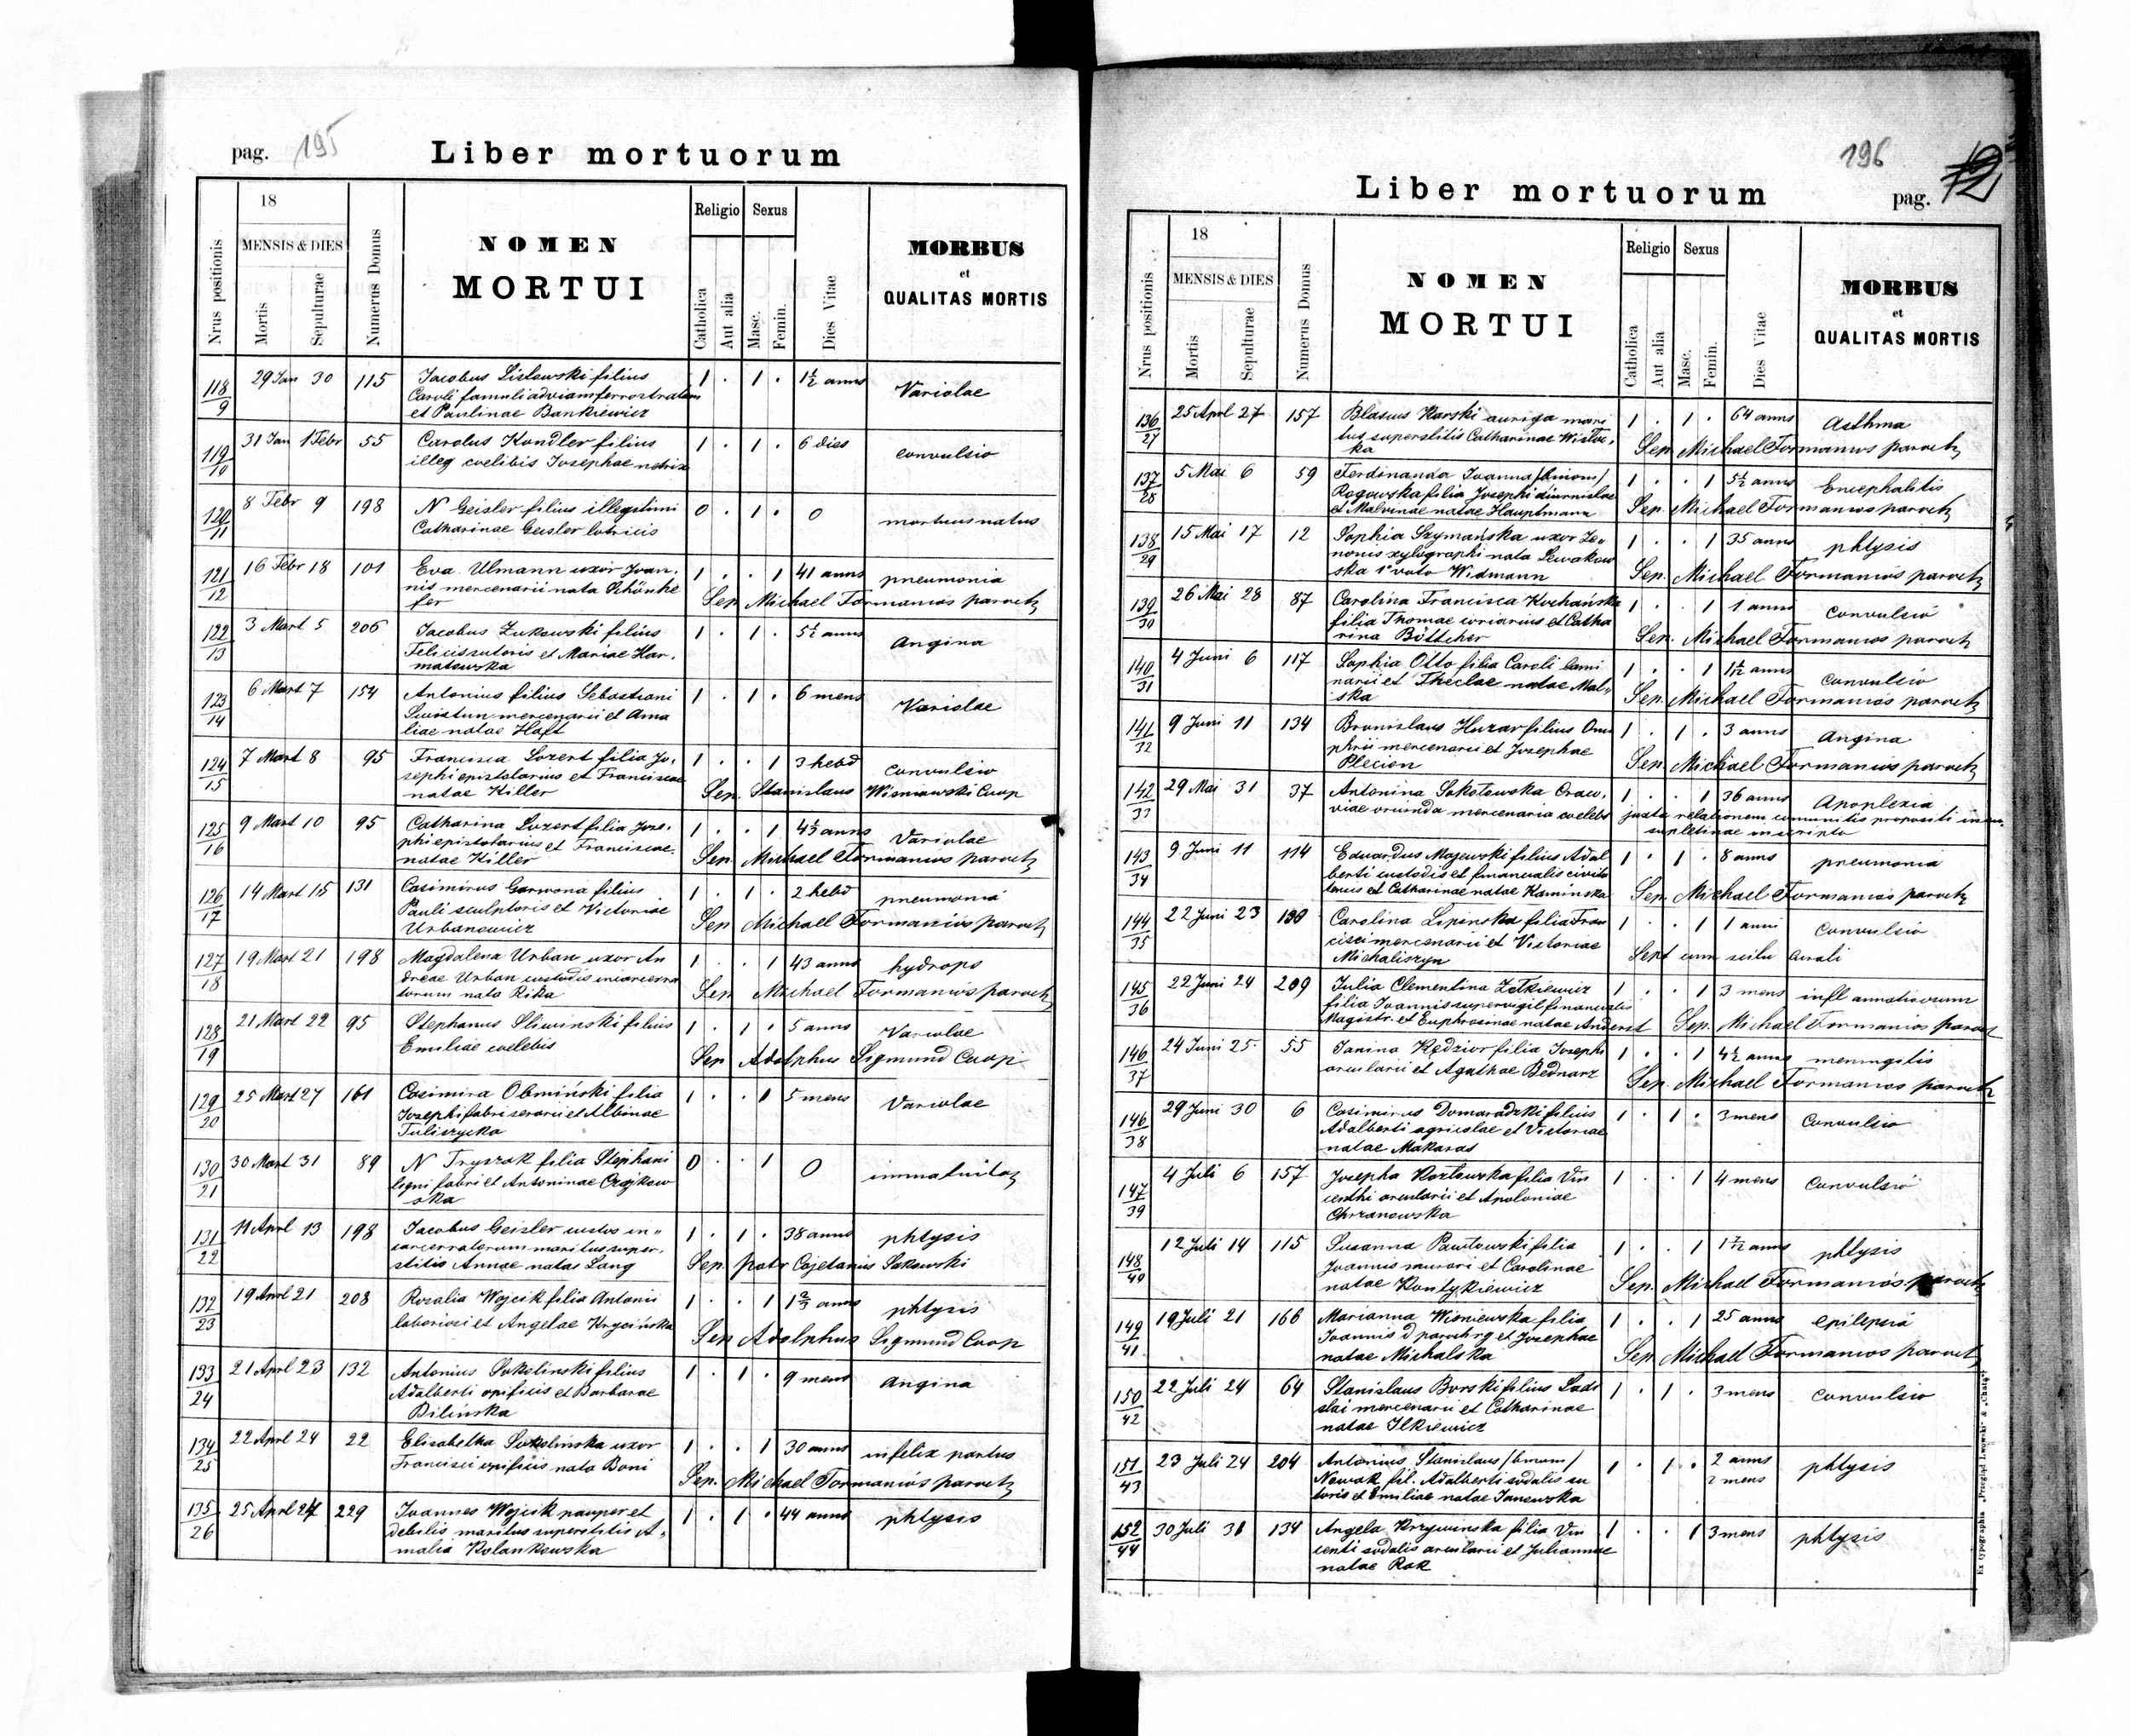 pag. 195
Liber mortuorum
Nrus positionis
18
MENSIS & DIES
Mortis
Sepulturae
Numerus Domus
NOMEN
MORTUI
Religio
Catholica
Aut alia
Sexus
Masc.
Femin.
Dies Vitae
MORBUS
et
QUALITAS MORTIS
118/9 29 Jan 30 115 Jacobus Lislowski filius 1 . 1 . 1½ anns Variolae
Caroli famuli ad viam ferrostratam
et Paulinae Bankiewicz
119/10 31 Jan 1 Febr 55 Carolus Kundler filius 1 . 1 . 6 dies convulsio
illeg coelibis Josephae
120/11 8 Febr 9 198 N Geisler filius illegitimi 0 . 1 . 0 mortuus natus
Catharinae Geisler lotricis
121/12 16 Febr 18 101 Eva Ulmann uxor Joan, 1 . . 1 41 anns pneumonia
nis mercenarii nata Schönhe
fer Sep. Michael Formanios paroch
122/13 3 Mart 5 206 Jacobus Żukowski filius 1 . 1 . 5½ anns Angina
Felicis sutoris et Mariae Har,
matowska
123/14 6 Mart 7 154 Antonius filius Sebastiani 1 . 1 . 6 mens Variolae
Swiatun mercenarii et Ama
liae natae Haft
124/15 7 Mart 8 95 Francisca Lozert filia Jo, 1 . . 1 3 hebd convulsio
sephi epistolarius et Franciscae
natae Killer Sep. Stanislaus Wisniowski Coop
125/16 9 Mart 10 95 Catharina Lozert filia Jose, 1 . . 1 anns Variolae
phi epistolarius et Franciscae
natae Killer Sep. Michael Formanios paroch
126/17 14 Mart 15 131 Casimirus Garwona filius 1 . 1 . 2 hebd pneumonia
Pauli sculptoris et Victoriae
Urbanowicz Sep. Michael Formanios paroch
127/18 19 Mart 21 198 Magdalena Urban uxor An 1 . . 1 43 anns hydrops
dreae Urban custodis incarcera
torum nata Rika Sep. Michael Formanios paroch
128/19 21 Mart 22 95 Stephanus Sliwinski filius 1 . 1 . 5 anns Variolae
Emiliae coelebis Sep. Adolphus Sigmund Coop
129/20 25 Mart 27 161 Casimira Obmiński filia 1 . . 1 5 mens Variolae
Josephi fabri serarii et Albinae
Tuliszycka
130/21 30 Mart 31 89 N Tryszak filia Stephani 0 . 1 0 immatuitas
ligni fabri et Antoninae Czajkow
ska
131/22 11 Aprl 13 198 Jacobus Geisler custos in„ 1 . 1 . 38 anns phtysis
carcerratorum maritus super,
stitis Annae natae Lang Sep. patr Cajetanus Sakowski
132/23 19 Aprl 21 208 Rozalia Wojcik filia Antonii 1 . . 1 1⅔ anns phtysis
laboriosi et Angelae Krycińska
Sep Adolphus Sigmund Coop
133/24 21 Aprl 23 132 Antonius Sokolinski filius 1 . 1 . 9 mens Angina
Adalberti opificis et Barbarae
Bilińska
134/25 22 Aprl 24 22 Elisabetha Sokolinska uxor 1 . . 1 30 anns infelix partus
Francisci opificis nata Boni
Sep. Michael Formanios paroch
135/26 25 Aprl 27 229 Joannes Wojcik pauper et 1 . 1 . 44 anns phtysis
debilis maritus superstitis A,
malia Kolankowska
196
Liber mortuorum
pag. 12
Nrus positionis
18
MENSIS & DIES
Mortis
Sepulturae
Numerus Domus
NOMEN
MORTUI
Religio
Catholica
Aut alia
Sexus
Masc.
Femin.
Dies Vitae
MORBUS
et
QUALITAS MORTIS
136/27 25 Aprl 27 157 Blasius Karski auriga mari 1 . 1 . 64 anns Asthma
tus superstitis Catharinae Wisłoc,
ka Sep. Michael Formanios paroch
137/28 5 Mai 6 59 Ferdinanda Joanna /binom/ 1 . . 1 5½ anns Encephalitis
Rogowska filia Josephi diurnistae
et Malvinae natae Hauptmann Sep. Michael Formanios paroch
138/29 15 Mai 17 12 Sophia Szymańska uxor Ze, 1 . . 1 35 anns phtysis
nonis xylographi nata Lewakow
ska 1° voto Widmann Sep. Michael Formanios paroch
139/30 26 Mai 28 87 Carolina Francisca Kochańska 1 . . 1 1 anns Convulsio
filia Thomae coriarius et Catha
rina Böttcher Sep. Michael Formanios paroch
140/31 4 Juni 6 117 Sophia Otto filia Caroli lami 1 . . 1 1½ anns convulsio
narii et Theclae natae Mal„
ska Sep. Michael Formanios paroch
141/32 9 Juni 11 134 Bronislaus Huzar filius Onu 1 . 1 . 3 anns Angina
phrii mercenarii et Josephae
Plecion Sep. Michael Formanios paroch
142/33 29 Mai 31 37 Antonina Sokołowska Craco, 1 . . 1 36 anns Apoplexia
viae oriunda mercenaria coelebs juxta relationem communitis propositi
inscripta
143/34 9 Juni 11 114 Eduardus Majewski filius Adal 1 . 1 . 8 anns pneumonia
berti custodis et finanzialis civita
tensis et Catharinae natae Kaminska Sep. Michael Formanios paroch
144/35 22 Juni 23 130 Carolina Lipinska filia Fran 1 . . 1 1 anni Convulsio
cisci mercenarii et Victoriae
Michaliszyn Sept cum scitu curali
145/36 22 Juni 24 209 Julia Clementina Zotkiewicz 1 . . 1 3 mens
filia Joannis supervigil finanzialis
Magistr. et Euphrosinae natae Anderst Sep. Michael Formanios paroch
146/37 24 Juni 25 55 Janina Kędzior filia Josephi 1 . . 1 4½ anns meningitis
arcularii et Agathae Bednarz
Sep. Michael Formanios paroch
146/38 29 Juni 30 6 Casimirus Domaradzki filius 1 . 1 . 3 mens Convulsio
Adalberti agricolae et Victoriae
natae Makaras
147/39 4 Juli 6 157 Josepha Kozłowska filia Vin 1 . . 1 4 mens Convulsio
centhi arcularii et Apoloniae
Chrzanowska
148/40 12 Juli 14 115 Susanna Pawłowski filia 1 . . 1 anns phtysis
Joannis murari et Carolinae
natae Kontykiewicz Sep. Michael Formanios paroch
149/41 19 Juli 21 166 Marianna Wisniewska filia 1 . . 1 25 anns epilepsia
Joannis et Josephae
natae Michalska Sep. Michael Formanios paroch
150/42 22 Juli 24 64 Stanislaus Borski filius Ladi 1 . 1 . 3 mens convulsio
slai mercenarii et Catharinae
natae Ilkiewicz
151/43 23 Juli 24 204 Antonius Stanislaus /binom/ 1 . 1 . 2 anns phtysis
Nowak fil. Adalberti sodalis su 2 mens
toris et Emiliae natae Janowska
152/44 30 Juli 31 134 Angela Krzywinska filia Vin 1 . . 1 3 mens phtysis
centi sodalis arcularii et Juliannae
natae Rak
Ex typographia „Przegląd Lwowski" & „Chata"